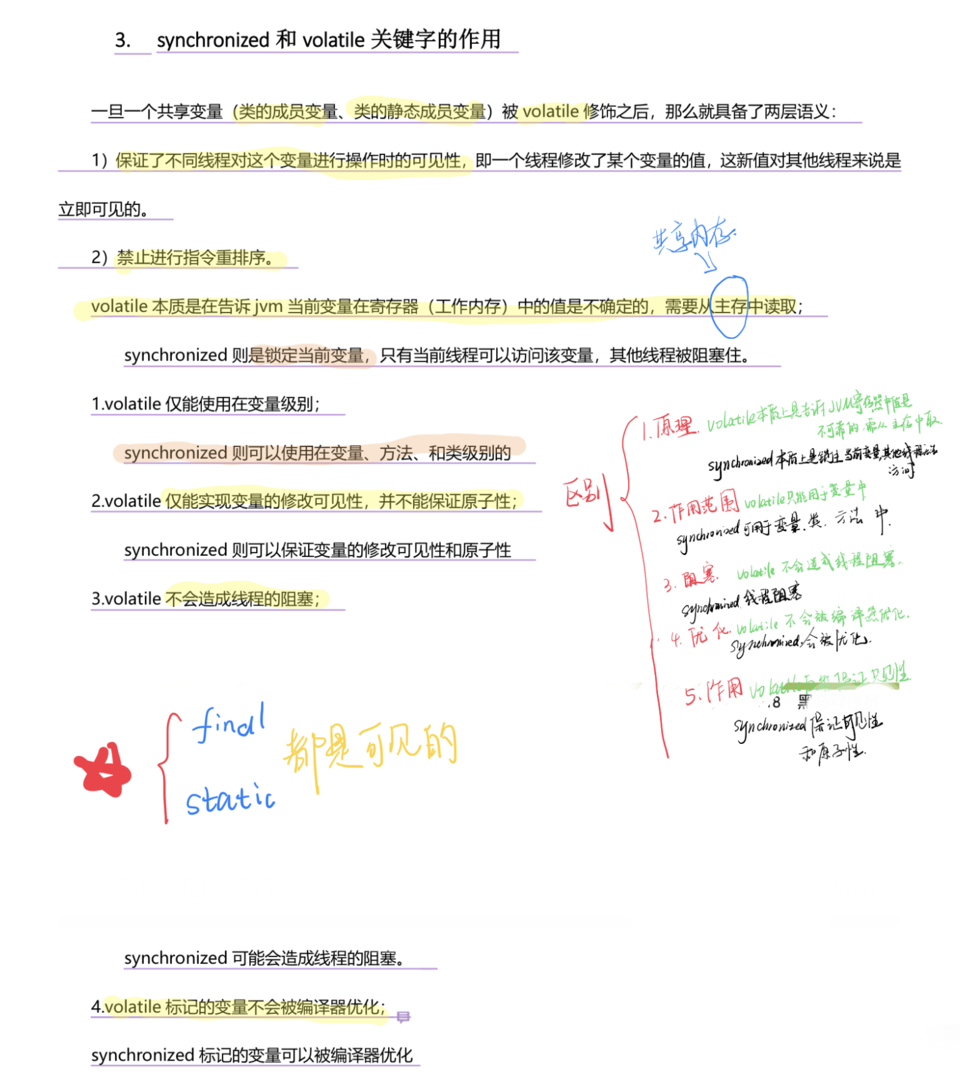 3. synchronized 和 volatile 关键字的作用
一旦一个共享变量（类的成员变量、类的静态成员变量）被 volatile 修饰之后，那么就具备了两层语义：
1）保证了不同线程对这个变量进行操作时的可见性，即一个线程修改了某个变量的值，这新值对其他线程来说是
立即可见的。
共享内存
2）禁止进行指令重排序。
volatile 本质是在告诉 jvm 当前变量在寄存器（工作内存）中的值是不确定的，需要从主存中读取；
synchronized 则是锁定当前变量，只有当前线程可以访问该变量，其他线程被阻塞住。
1.volatile 仅能使用在变量级别；
synchronized 则可以使用在变量、方法、和类级别的
2.volatile 仅能实现变量的修改可见性，并不能保证原子性；
synchronized 则可以保证变量的修改可见性和原子性
3.volatile 不会造成线程的阻塞；
区别
1.原理 volatile本质上是告诉JVM寄存器中值是
不可靠的,需从主存中取
synchronized本质上是锁住当前变量,其他线程无法
访问
2.作用范围 volatile只能用于变量中
synchronized可用于变量、类、方法中.
3.阻塞 volatile不会造成线程阻塞.
synchronized线程阻塞
4.优化 volatile不会被编译器优化.
synchronized会被优化.
5.作用 可见性
synchronized保证可见性
和原子性.
final
static
都是可见的
synchronized 可能会造成线程的阻塞。
4.volatile 标记的变量不会被编译器优化；
synchronized 标记的变量可以被编译器优化